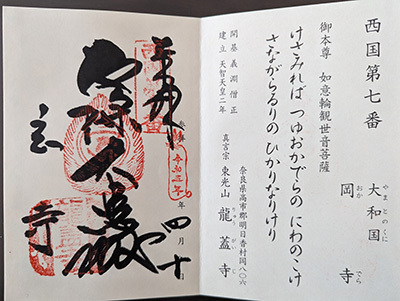 西国第七番
大和国
やまとのくに
岡寺
おかでら
御本尊 如意輪観世音菩薩
けさみれば つゆおかでらの にわのこけ
さながらるりの ひかりなりけり
開基 義淵僧正
建立 天智天皇二年
奈良県高市郡明日香村岡八〇六
真言宗 東光山 龍蓋寺
りゅうがいじ
奉拝
令和五年
年 四月十
寺